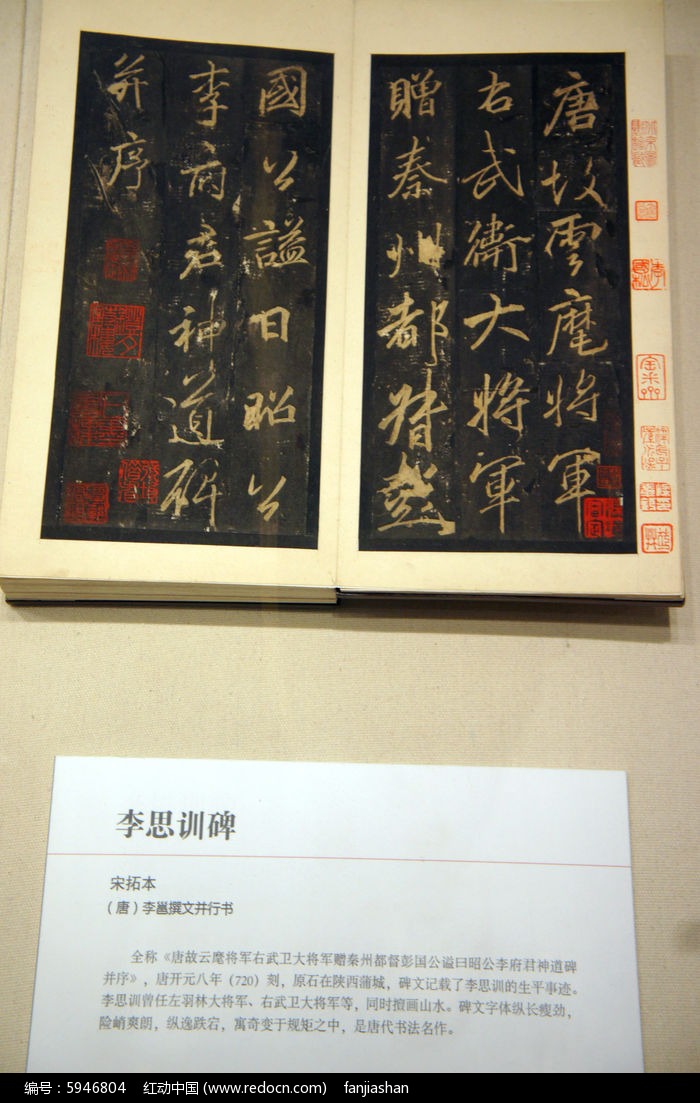 唐故雲麾將軍
右武衛大將軍
贈秦州都督彭
國公諡曰昭公
李府君神道碑
并序
李思训碑
宋拓本
（唐）李邕撰文并行书
全称《唐故云麾将军右武卫大将军赠秦州都督彭国公谥曰昭公李府君神道碑
并序》，唐开元八年（720）刻，原石在陕西蒲城，碑文记载了李思训的生平事迹。
李思训曾任左羽林大将军、右武卫大将军等，同时擅画山水。碑文字体纵长瘦劲，
险峭爽朗，纵逸跌宕，寓奇变于规矩之中，是唐代书法名作。
编号：5946804 红动中国 (www.redocn.com) fanjiashan